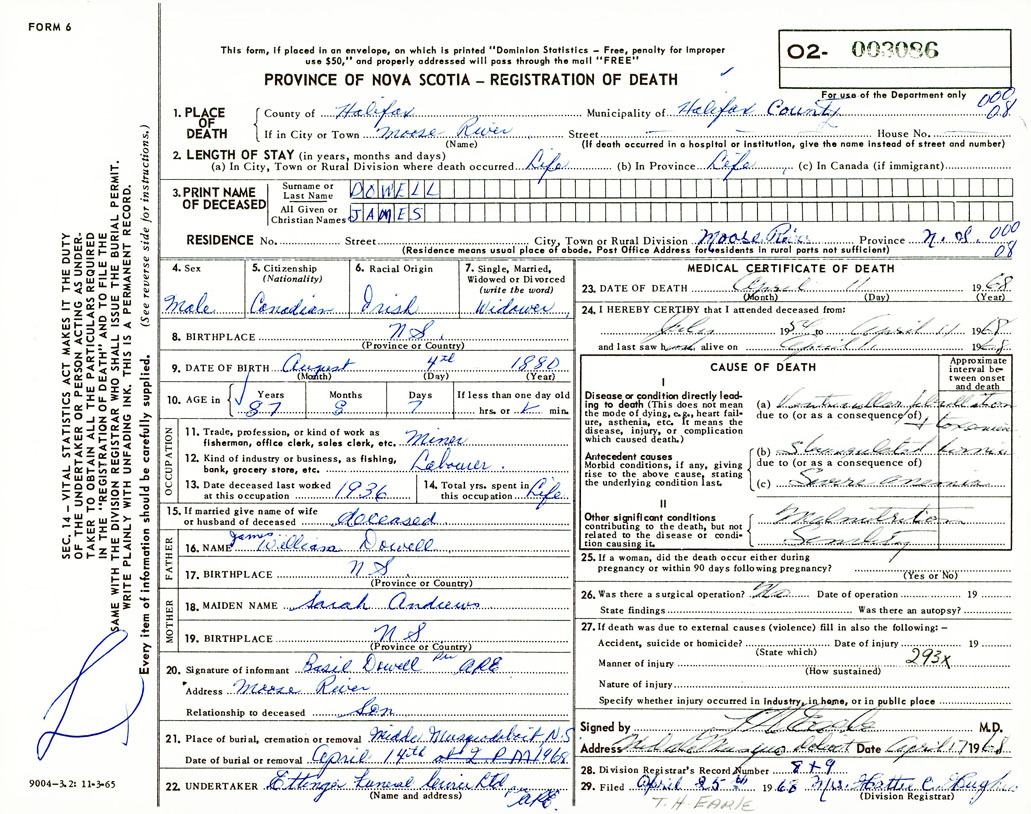 FORM 6
This form, if placed in an envelope, on which is printed "Dominion Statistics – Free, penalty for improper
use $50," and properly addressed will pass through the mail "FREE"
O2- 003086
PROVINCE OF NOVA SCOTIA – REGISTRATION OF DEATH
For use of the Department only
000
08
1. PLACE OF DEATH
County of Halifax Municipality of Halifax County
If in City or Town Moose River Street House No.
(Name) (If death occurred in a hospital or institution, give the name instead of street and number)
2. LENGTH OF STAY (in years, months and days)
(a) In City, Town or Rural Division where death occurred Life (b) In Province Life (c) In Canada (if immigrant)
3. PRINT NAME OF DECEASED
Surname or Last Name DOWELL
All Given or Christian Names JAMES
RESIDENCE No. Street City, Town or Rural Division Moose River Province N.S. 000
(Residence means usual place of abode. Post Office Address for residents in rural parts not sufficient) 08
4. Sex 5. Citizenship (Nationality) 6. Racial Origin 7. Single, Married, Widowed or Divorced (write the word)
Male Canadian Irish Widower
8. BIRTHPLACE N.S.
(Province or Country)
9. DATE OF BIRTH August 4th 1880
(Month) (Day) (Year)
10. AGE in Years Months Days If less than one day old
87 8 7 hrs. or min.
OCCUPATION
11. Trade, profession, or kind of work as
fisherman, office clerk, sales clerk, etc. Miner
12. Kind of industry or business, as fishing,
bank, grocery store, etc. Labourer
13. Date deceased last worked at this occupation 1936
14. Total yrs. spent in this occupation Life
15. If married give name of wife
or husband of deceased deceased
FATHER
16. NAME James William Dowell
17. BIRTHPLACE N.S.
(Province or Country)
MOTHER
18. MAIDEN NAME Sarah Andrews
19. BIRTHPLACE N S
(Province or Country)
20. Signature of informant Basil Dowell per ARE
Address Moose River
Relationship to deceased Son
21. Place of burial, cremation or removal Middle Musquodoboit N.S
Date of burial or removal April 14th at 2 P M 1968
22. UNDERTAKER Ettinger Funeral Service Ltd
(Name and address) per ARE
MEDICAL CERTIFICATE OF DEATH
23. DATE OF DEATH April 11 1968
(Month) (Day) (Year)
24. I HEREBY CERTIFY that I attended deceased from:
July 195 to April 11 1968
and last saw him alive on April 11 1968
CAUSE OF DEATH
Approximate interval between onset and death
I
Disease or condition directly leading to death (This does not mean
the mode of dying, e.g., heart failure, asthenia, etc. It means the
disease, injury, or complication
which caused death.)
(a) Ventricular fibrillation
due to (or as a consequence of)
+ toxemia
Antecedent causes
Morbid conditions, if any, giving
rise to the above cause, stating
the underlying condition last.
(b) Strangulated hernia
due to (or as a consequence of)
(c) Severe anemia
II
Other significant conditions
contributing to the death, but not
related to the disease or condition causing it.
Malnutrition
Senility
25. If a woman, did the death occur either during
pregnancy or within 90 days following pregnancy?
(Yes or No)
26. Was there a surgical operation? No Date of operation 19
State findings Was there an autopsy?
27. If death was due to external causes (violence) fill in also the following: –
Accident, suicide or homicide? Date of injury 19
(State which)
Manner of injury 293x
(How sustained)
Nature of injury
Specify whether injury occurred in Industry, in home, or in public place
Signed by M.D.
Address Middle Musquodoboit Date April 17 1968
28. Division Registrar's Record Number 849
29. Filed April 25th 1968 Mrs. Hattie C.
(Division Registrar)
T. H. EARLE
SEC. 14 – VITAL STATISTICS ACT MAKES IT THE DUTY
OF THE UNDERTAKER OR PERSON ACTING AS UNDER-
TAKER TO OBTAIN ALL THE PARTICULARS REQUIRED
IN THE "REGISTRATION OF DEATH" AND TO FILE THE
SAME WITH THE DIVISION REGISTRAR WHO SHALL ISSUE THE BURIAL PERMIT.
WRITE PLAINLY WITH UNFADING INK. THIS IS A PERMANENT RECORD.
Every item of information should be carefully supplied. (See reverse side for instructions.)
9004–3.2: 11-3-65